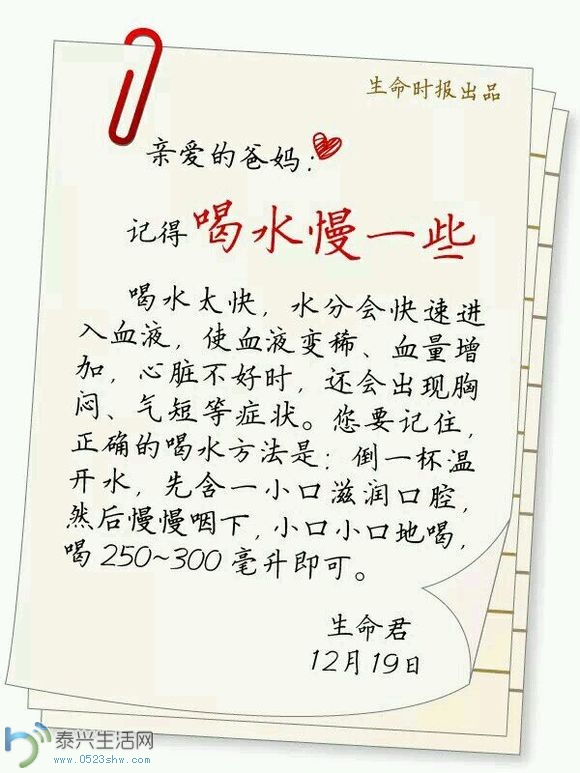 生命时报出品
亲爱的爸妈：
记得喝水慢一些
喝水太快，水分会快速进
入血液，使血液变稀、血量增
加，心脏不好时，还会出现胸
闷、气短等症状。您要记住，
正确的喝水方法是：倒一杯温
开水，先含一小口滋润口腔，
然后慢慢咽下，小口小口地喝，
喝250~300毫升即可。
生命君
12月19日
泰兴生活网
www.0523shw.com